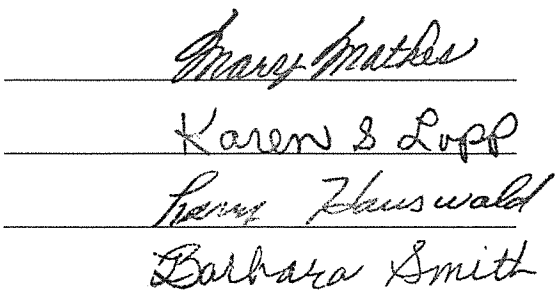 Mary Mathes
Karen S Lopp
Larry Hauswald
Barbara Smith